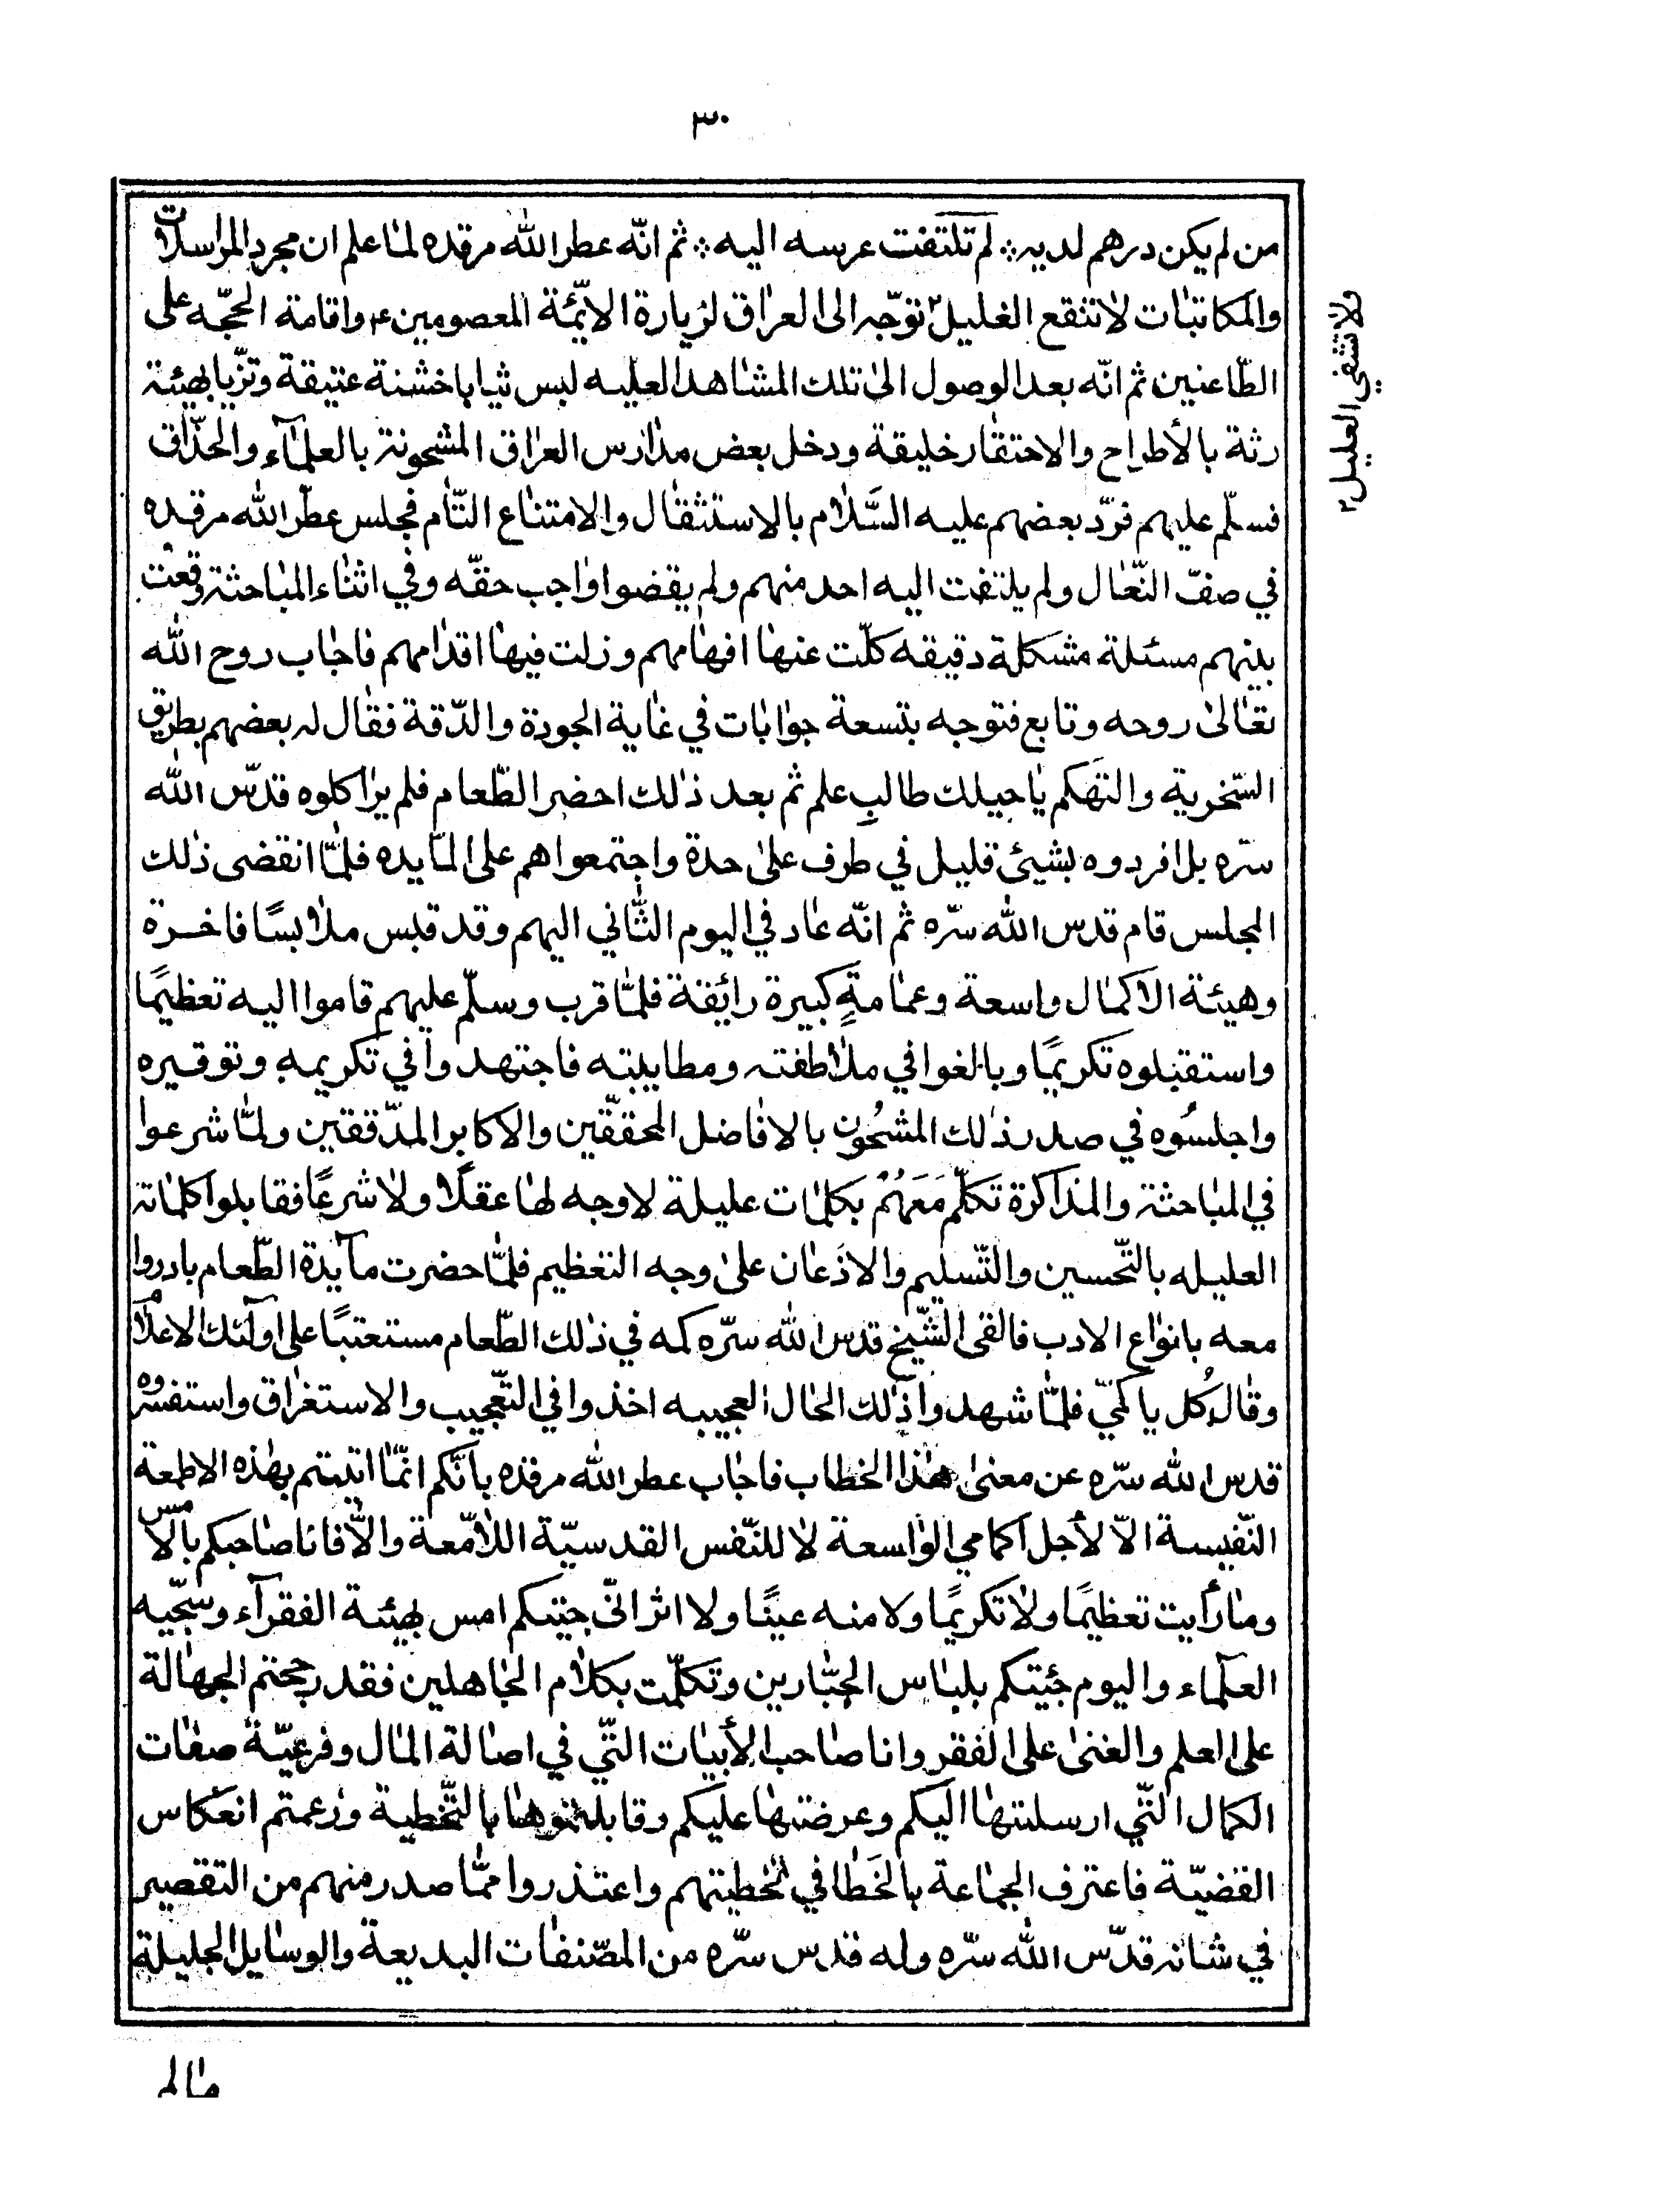 ٣٠
من لم يكن درهم لديه ؞ لم تلتفت عرسه اليه ؞ ثم انّه عطر الله مرقده لمّا علم ان مجرد المراسلات
والمكاتبات لا تنقع الغليل٢ توجّه الى العراق لزيارة الائمّة المعصومين ع واقامة الحجّه على
ولا تشفي العليل٢
الطّاعنين ثم انّه بعد الوصول الى تلك المشاهد العليه لبس ثيابا خشنة عتيقة وتزّيا بهيئة
رثة بالأطراح والاحتقار خليقة ودخل بعض مدارس العراق المشحونة بالعلمآء والحذّاق
فسلّم عليهم فردّ بعضهم عليه السَّلام بالاستثقال والامتناع التّام فجلس عطّر الله مرقده
في صفّ النّعال ولم يلتفت اليه احد منهم ولم يقضوا واجب حقّه وفي اثناء المباحثة وقعت
بينهم مسئلة مشكلة دقيقه كلّت عنها افهامهم وزلت فيها اقدامهم فاجاب روح الله
تعالى روحه وتابع فتوجه بتسعة جوابات في غاية الجودة والدّقة فقال له بعضهم بطريق
السّخرية والتهكم ياخيلك طالب علم ثم بعد ذلك احضر الطّعام فلم يراكلوه قدّس الله
سرّه بل افردوه بشيئ قليل في طرف على حدة واجتمعوا هم على المآيده فلمّا انقضى ذلك
المجلس قام قدس الله سرّه ثم انّه عاد في اليوم الثّاني اليهم وقد قلبس ملابسًا فاخرة
وهيئة الاكمال واسعة وعمامةٍ كبيرة رائقة فلمّا قرب وسلّم عليهم قاموا اليه تعظيمًا
واستقبلوه تكريمًا وبالغوا في ملاطفته ومطايبته فاجتهدوا في تكريمه وتوقيره
واجلسُوه في صدر ذلك المشحُون بالافاضل المحققّين والاكابر المدّققين ولمّا شرعوا
في المباحثة والمذاكرة تكلّم مَعَهُمْ بكلمات عليلة لا وجه لها عقلًا ولا شرعًا فقابلوا كلماته
العليله بالتّحسين والتّسليم والاذعان على وجه التعظيم فلمّا حضرت مآيدة الطّعام بادروا
معه بانواع الادب فالقى الشّيخ قدس الله سرّه كمه في ذلك الطّعام مستعتبًا على اولئك الاعلام
وقال كُل يا كمّي فلمّا شهدوا ذلك الحال العجيبه اخذوا في التّعجيب والاستغراق واستفسروه
قدس الله سرّه عن معنى هذا الخطاب فاجاب عطر الله مرقده بانّكم انّما اتيتم بهذه الاطمعة
النّفيسة الّا لأجل اكمامي الواسعة لا للنّفس القدسيّة اللامّعة والّا فانا صاحبكم بالامس
وما رأيت تعظيمًا ولا تكريمًا ولا منه عينًا ولا اثرا انّي جيتكم امس بهيئة الفقرآء وسجّيه
العلمآء واليوم جئيتكم بلباس الجبّارين وتكلّمت بكلام الجاهلين فقد رجحتم الجهالة
على العلم والغنى على الفقر وانا صاحب الأبيات التّي في اصالة المال وفرعيّة صفات
الكمال التّي ارسلتها اليكم وعرضتها عليكم وقابلتموها بالتّخطية وزعمتم انعكاس
القضيّة فاعترف الجماعة بالخَطا في تخطيتهم واعتذروا ممّا صدر منهم من التقصير
في شانه قدّس الله سرّه وله قدس سرّه من المصّنفات البديعة والوسايل الجليلة
ما لم